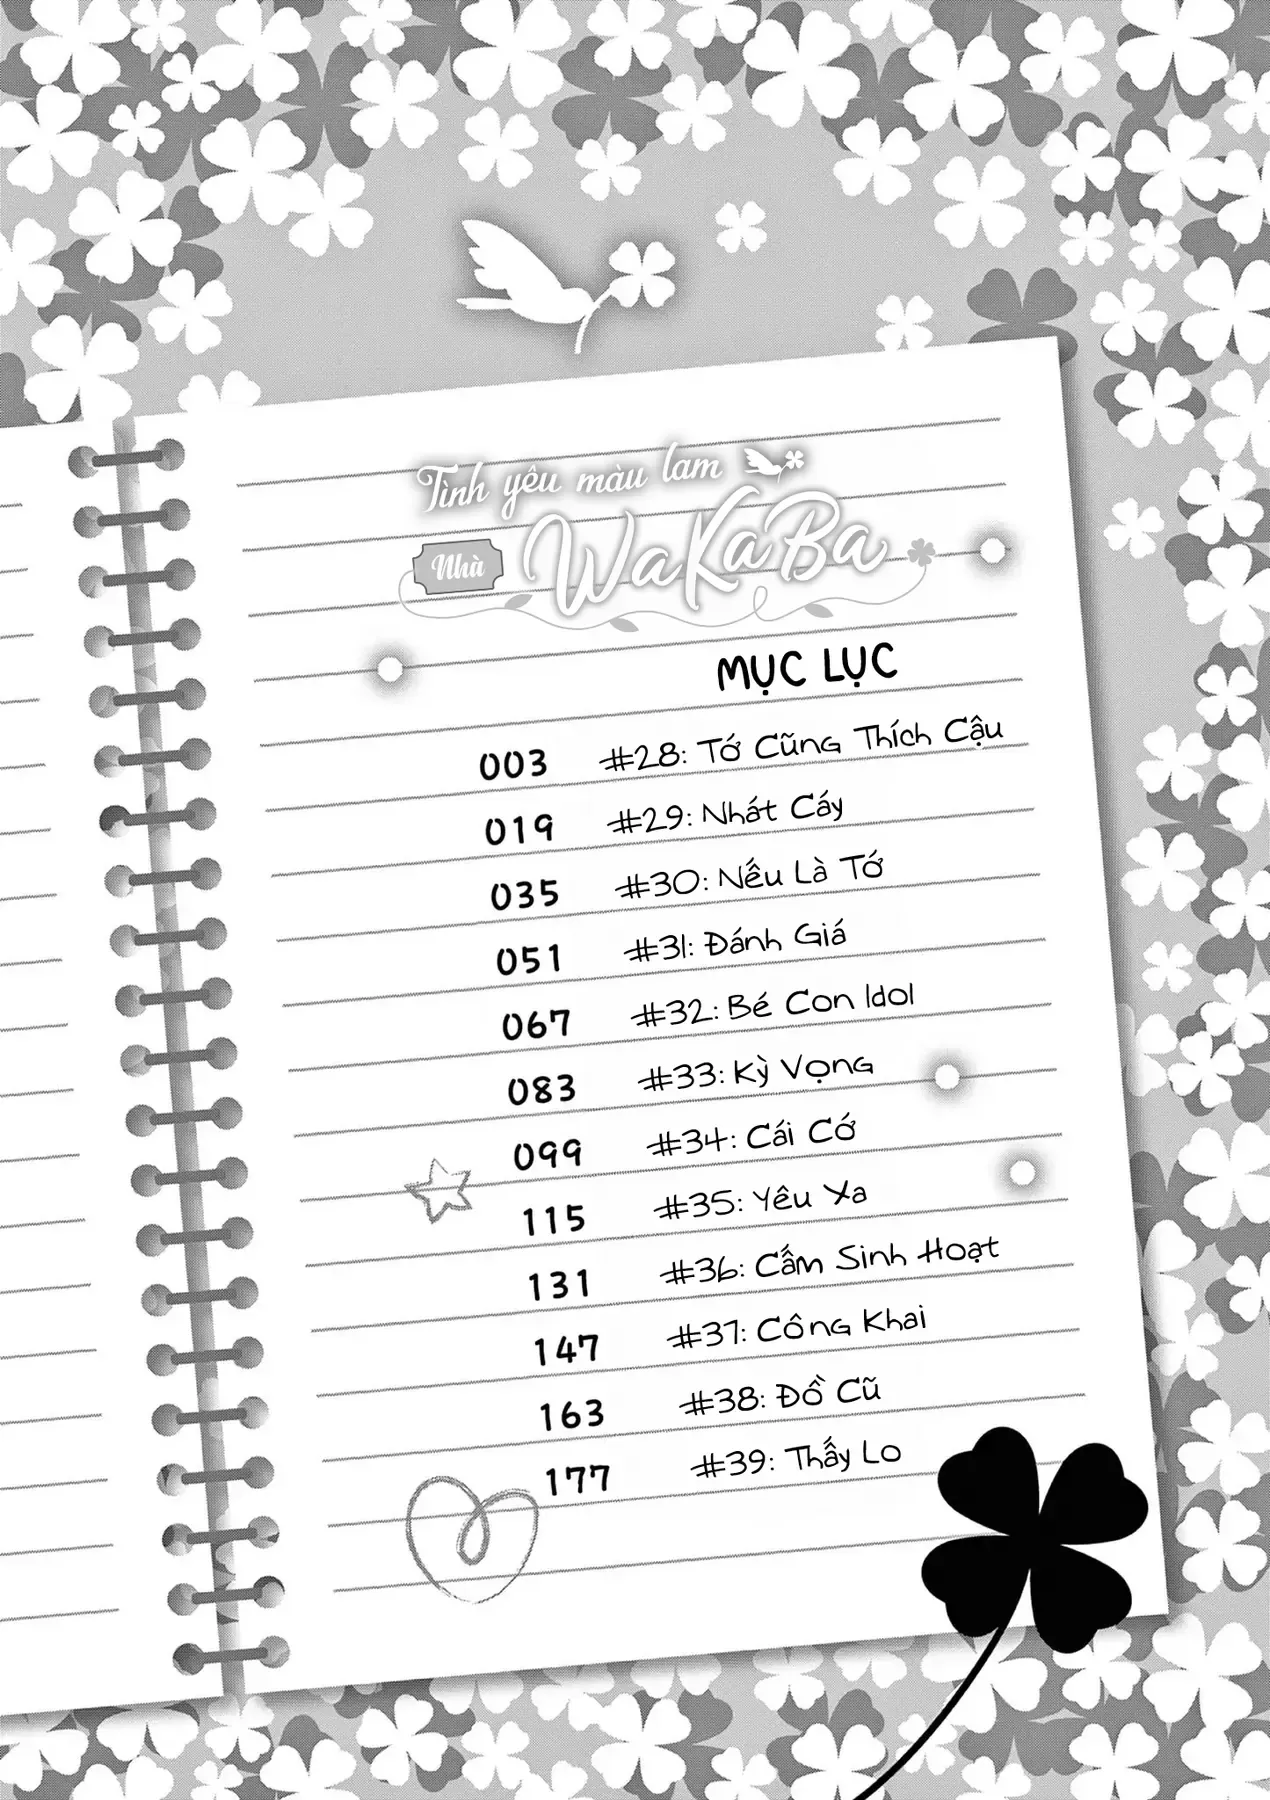 Tình yêu màu lam
Nhà WaKaBa
MỤC LỤC
003 #28: Tớ Cũng Thích Cậu
019 #29: Nhát Cáy
035 #30: Nếu Là Tớ
051 #31: Đánh Giá
067 #32: Bé Con Idol
083 #33: Kỳ Vọng
099 #34: Cái Cớ
115 #35: Yêu Xa
131 #36: Cấm Sinh Hoạt
147 #37: Công Khai
163 #38: Đồ Cũ
177 #39: Thấy Lo